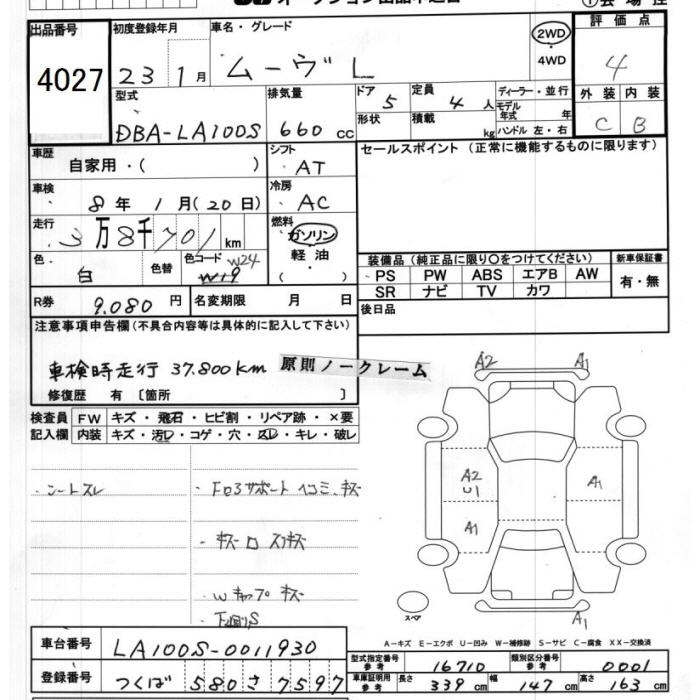 出品番号 初度登録年月 車名・グレード 2WD 4WD 評価点
4027 23 1月 ムーヴL 4
型式 排気量 ドア 5 定員 4人 ディーラー・並行 外装 内装
DBA-LA100S 660cc 形状 積載 kg モデル年式 年 ハンドル 左・右 C B
車歴 自家用・( ) シフト AT セールスポイント (正常に機能するものに限ります)
車検 8年 1月(20日) 冷房 AC
走行 3万8千701km 燃料 ガソリン
軽油
( )
色 白 色替 色コード W24 W19
装備品(純正品に限り○をつけてください) 新車保証書
PS PW ABS エアB AW 有・無
SR ナビ TV カワ
R券 9.080円 名変期限 月 日 後日品
注意事項申告欄(不具合内容等は具体的に記入して下さい)
車検時走行 37.800km 原則ノークレーム
修復歴 有 〔箇所 〕
検査員 FW キズ・飛石・ヒビ割・リペア跡・×要
記入欄 内装 キズ・汚レ・コゲ・穴・スレ・キレ・破レ
・シートスレ
A2 A1
A2
U1
A1
A1
A1
スペア
A-キズ E-エクボ U-凹み W-補修跡 S-サビ C-腐食 XX-交換済
車台番号 LA100S-0011930
登録番号 つくば 580 さ 7597
型式指定番号 参考 16710 類別区分番号 参考 0001
車庫証明用 参考 長さ 339cm 幅 147cm 高さ 163cm